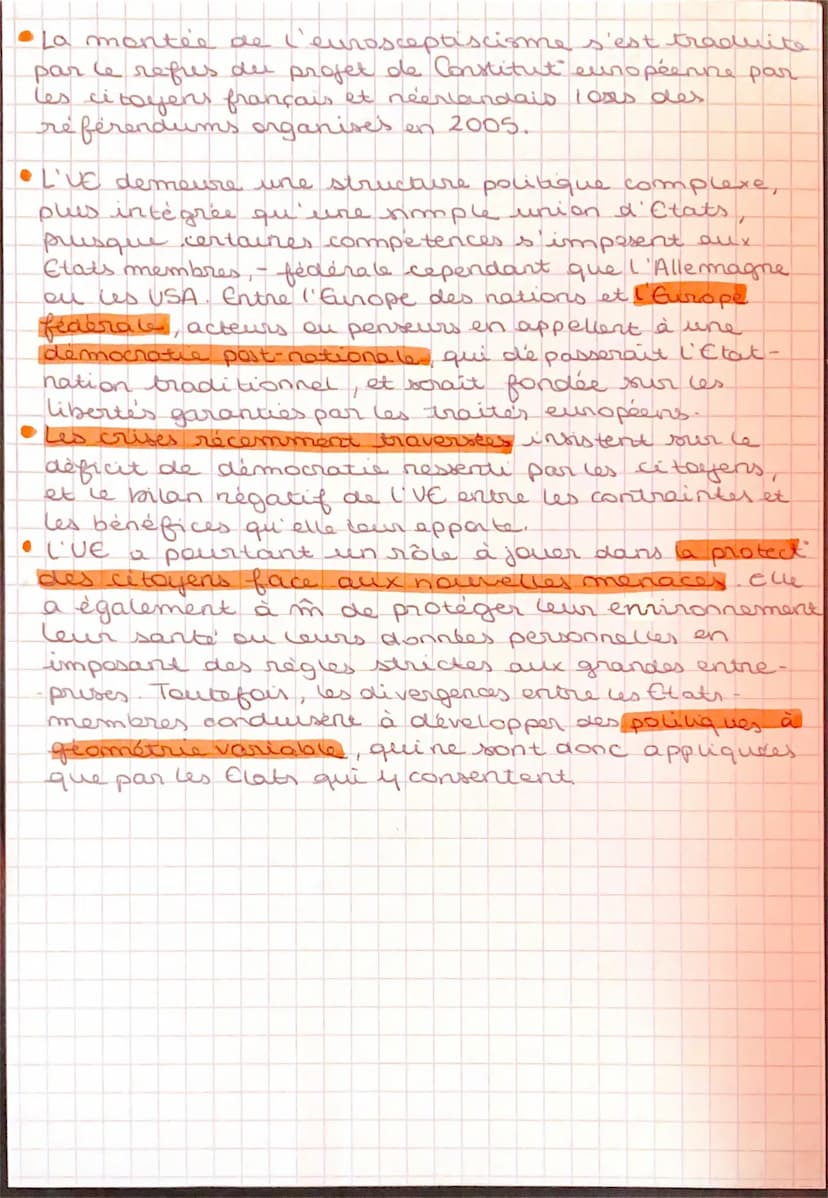 • La montée de l'euroscepticisme s'est traduite
par le refus du projet de Constitut° européenne par
les citoyens français et néerlandais lors des
référendums organisés en 2005.
• L'UE demeure une structure politique complexe,
plus intégrée qu'une simple union d'Etats,
puisque certaines compétences s'imposent aux
Etats membres, - fédérale cependant que l'Allemagne
ou les USA. Entre l'Europe des nations et l'Europe
fédérale, acteurs ou penseurs en appellent à une
démocratie post-nationale, qui dépasserait l'Etat-
nation traditionnel, et serait fondée sur les
libertés garanties par les traités européens.
• Les crises récemment traversées insistent sur le
déficit de démocratie ressenti par les citoyens,
et le bilan négatif de l'UE entre les contraintes et
les bénéfices qu'elle leur apporte.
• L'UE a pourtant un rôle à jouer dans la protect°
des citoyens face aux nouvelles menaces. Elle
a également à m̂ de protéger leur environnement
leur santé ou leurs données personnelles en
imposant des règles strictes aux grandes entre-
-prises. Toutefois, les divergences entre les Etats-
membres conduisent à développer des politiques à
géométrie variable, qui ne sont donc appliquées
que par les Etats qui y consentent.